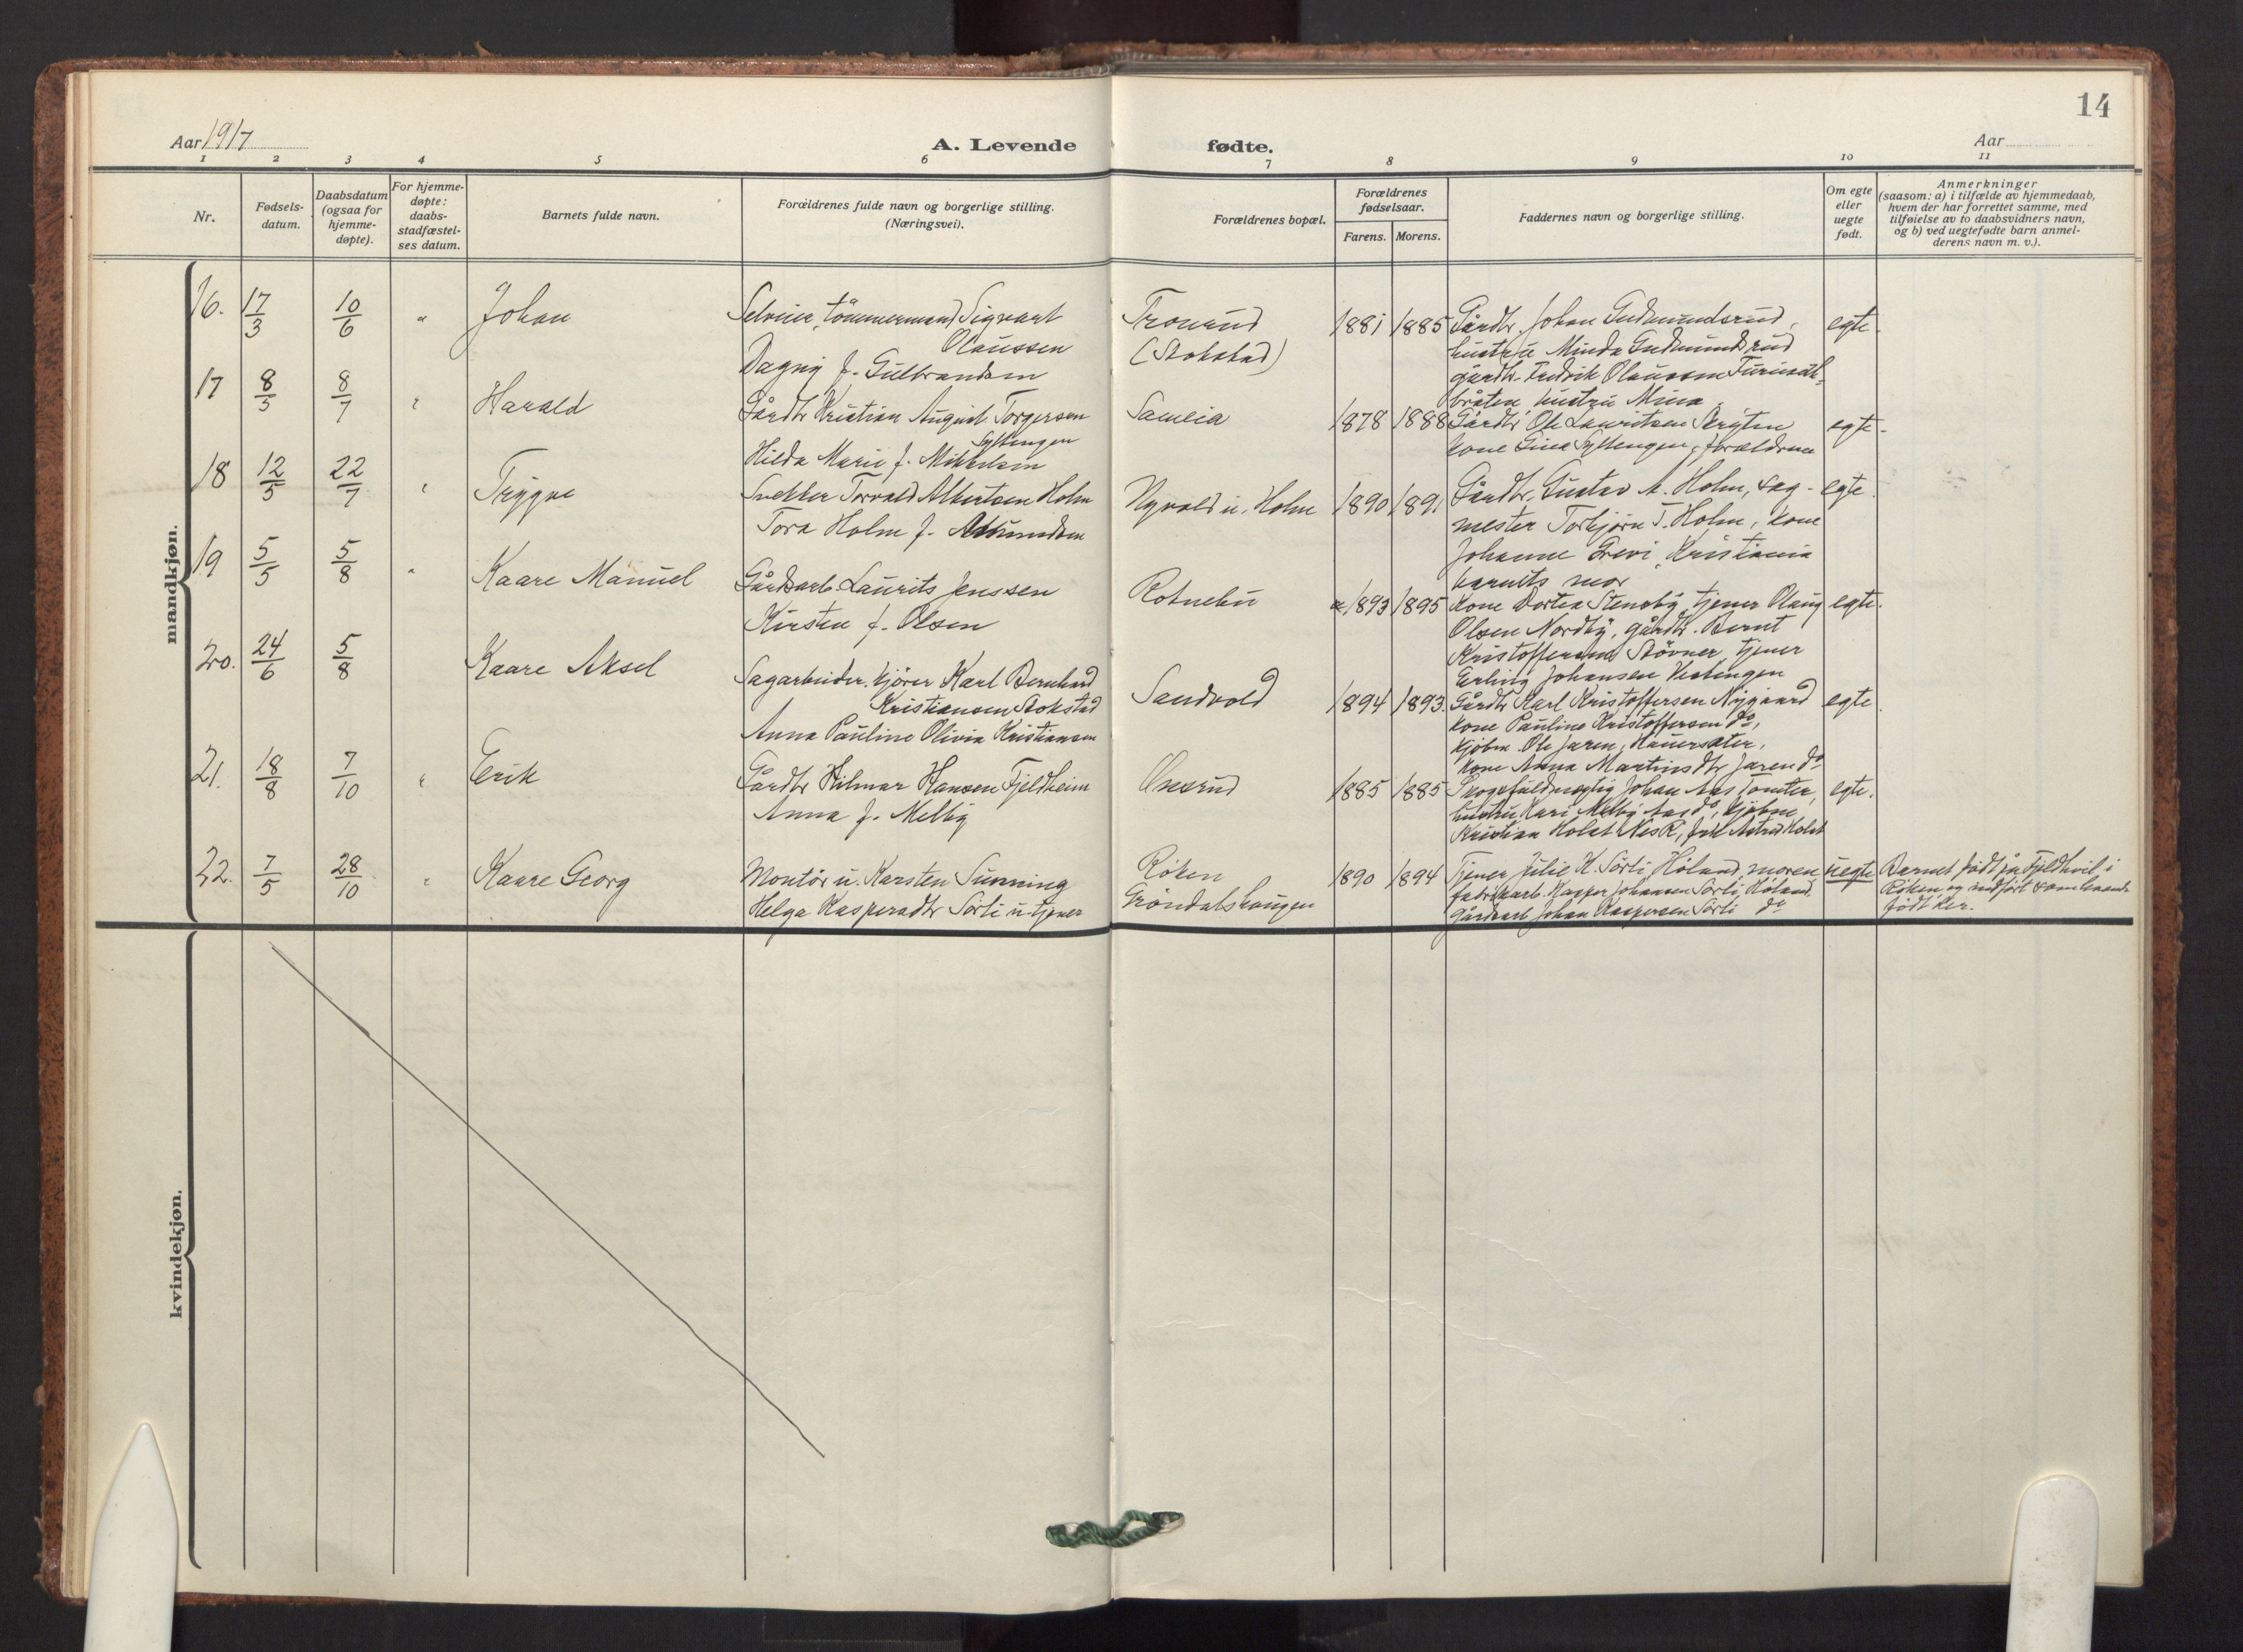 14
Aar 1917
A. Levende fødte.
Aar
1 2 3 4 5 6 7 8 9 10 11
Nr.
Fødsels-
datum.
Daabsdatum
(ogsaa for
hjemme-
døpte).
For hjemme-
døpte:
daabs-
stadfæstel-
ses datum.
Barnets fulde navn.
Forældrenes fulde navn og borgerlige stilling.
(Næringsvei).
Forældrenes bopæl.
Forældrenes
fødselsaar.
Farens. Morens.
Faddernes navn og borgerlige stilling.
Om egte
eller
uegte
født.
Anmerkninger
(saasom: a) i tilfælde av hjemmedaab,
hvem der har forrettet samme, med
tilføielse av to daabsvidners navn,
og b) ved uegtefødte barn anmel-
derens navn m. v.).
mandkjøn.
16. 17/3 10/6 " Johan
Selveier, tömmermand Sigvart
Olaussen
Dagny f. Gulbrandsen
Tronrud
(Stokstad)
1881 1885
Gårdbr. Johan Gudmundsrud,
hustru Minda Gudmundsrud
gårdbr. Fredrik Olaussen
bråten hustru Mina
egte.
17 8/5 8/7 " Harald
Gårdbr Kristian August Torgersen
Syltengen
Hilda Marie f. Mikkelsen
Samlia
1878 1888
Gårdbr Ole Lauritsen
kone Gina Syltengen, forældrene
egte.
18 12/5 22/7 " Trygve
Snekker Torvald Albertsen Holm
Tora Holm f. Amundsen
Nyvold u. Holm
1890 1891
Gårdbr. Gustav A. Holm, sag-
mester Torbjörn T. Holm, kone
Johanne Grevi, Kristiania
barnets mor
egte.
19 5/5 5/8 " Kaare Manuel
Gårdsarb. Laurits Jenssen
Kirsten f. Olsen
Rotnebu
1893 1895
Kone Dortea Stensby, tjener Olaug
Olsen Nordby, gårdbr. Bernt
Kristoffersen Stövner, tjener
Erling Johansen Vestengen
egte.
20. 24/6 5/8 Kaare Aksel
Sagarbeider, kjörer Karl Bernhard
Kristiansen Stokstad
Anna Pauline Olivia Kristiansen
Sandvold
1894 1893.
Gårdbr Karl Kristoffersen Nygaard
kone Pauline Kristoffersen do,
kjöbm. Ole Jaren, Hauersæter,
kone Anna Martinsdtr Jaren do
egte.
21. 18/8 7/10 " Erik
Gårdbr Hilmar Hansen Fjeldheim
Anna f. Melby
Onsrud
1885 1885
Skogsfuldmægtig Johan Aas Tomter,
hustru Kari Melby Aas do, kjöbm.
Kristian Holst Nes R, frk Astrid Holst
egte.
22. 7/5 28/10 " Kaare Georg
Montör u. Karsten Sunning
Helga Kaspersdtr Sörli u. tjener
Röken
Gröndalshaugen
1890 1894
Tjener Julie K. Sörli, Höland, moren
fabrikarb. Kasper Johansen Sörli, Höland,
gårdsarb Johan Kaspersen Sörli do
uegte
Barnet födt på Fjeldhvil i
Röken og indfört som levende
födt her.
kvindekjøn.